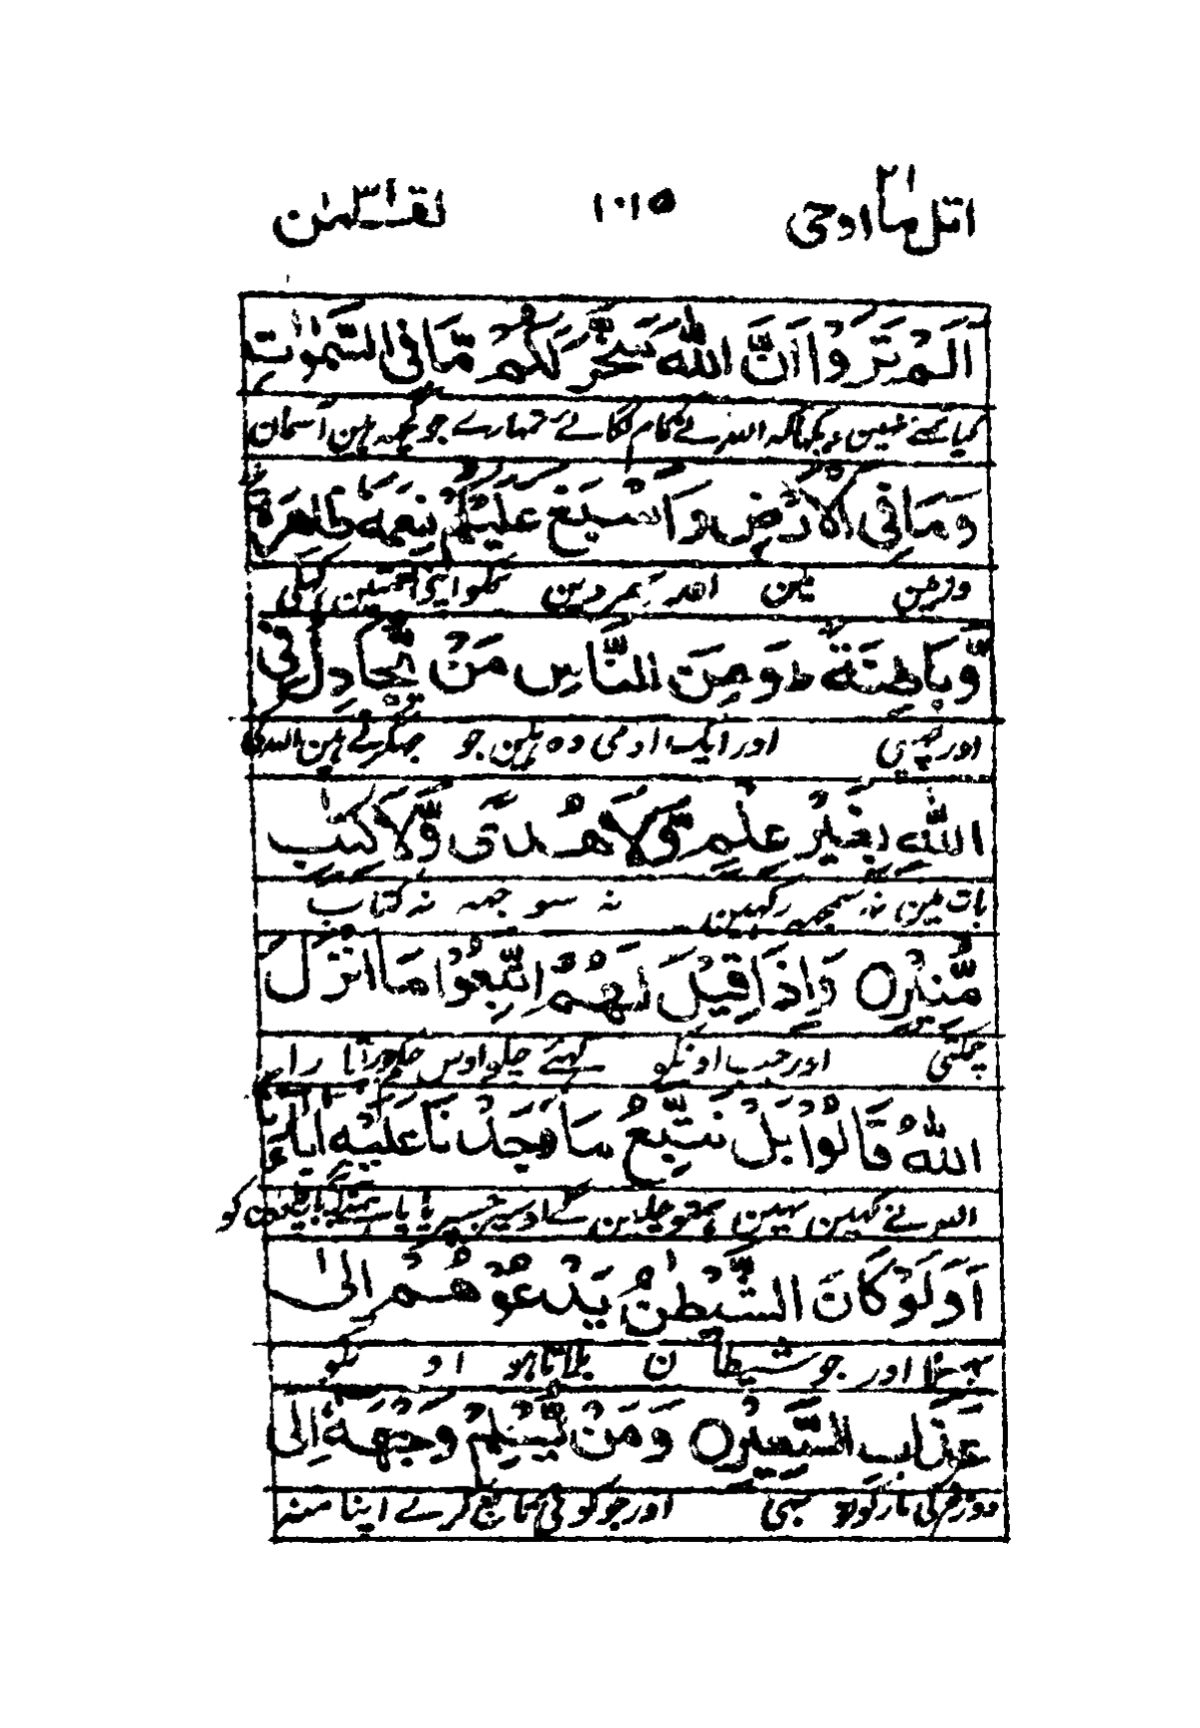 اتل مآ اوحی ٢١
١٠١٥
لقمٰن ٣١
اَلَمْ تَرَوْا اَنَّ اللّٰهَ سَخَّرَ لَكُمْ مَّا فِی السَّمٰوٰتِ
کیا تمنے نہین دیکھا کہ اللہ نے کام لگائے تمہارے جو کچہہ ہین آسمان
وَمَا فِی الْاَرْضِ وَاَسْبَغَ عَلَیْكُمْ نِعَمَهٗ ظَاهِرَةً
وزمین مین اور بہردین تمکو اپنی نعمتین کہلی
وَّبَاطِنَةً ط وَمِنَ النَّاسِ مَنْ یُّجَادِلُ فِی
اور چہپی اور ایک ادمی وہ ہین جو جہگڑتے ہین اللہ کی
اللّٰهِ بِغَیْرِ عِلْمٍ وَّلَا هُدًی وَّلَا كِتٰبٍ
بات مین نہ سمجہہ رکہین نہ سوجہہ نہ کتاب
مُّنِیْرٍ ۝ وَاِذَا قِیْلَ لَهُمُ اتَّبِعُوْا مَا اَنْزَلَ
چمکتی اور جب اونکو کہئے چلو اوس پر جو اتارا
اللّٰهُ قَالُوْا بَلْ نَتَّبِعُ مَا وَجَدْنَا عَلَیْهِ اٰبَآءَنَا
اللہ نے کہین نہین ہمتو چلین گے اوسپر جسپر پایا ہمنے اپنے باپ دادون کو
اَوَلَوْ كَانَ الشَّیْطٰنُ یَدْعُوْهُمْ اِلٰی
بہلا اور جو شیطان بلاتا ہو اونکو
عَذَابِ السَّعِیْرِ ۝ وَمَنْ یُّسْلِمْ وَجْهَهٗ اِلَی
دوزخ کی مار کو تو بہی اور جو کوئی تابع کرے اپنا منہ